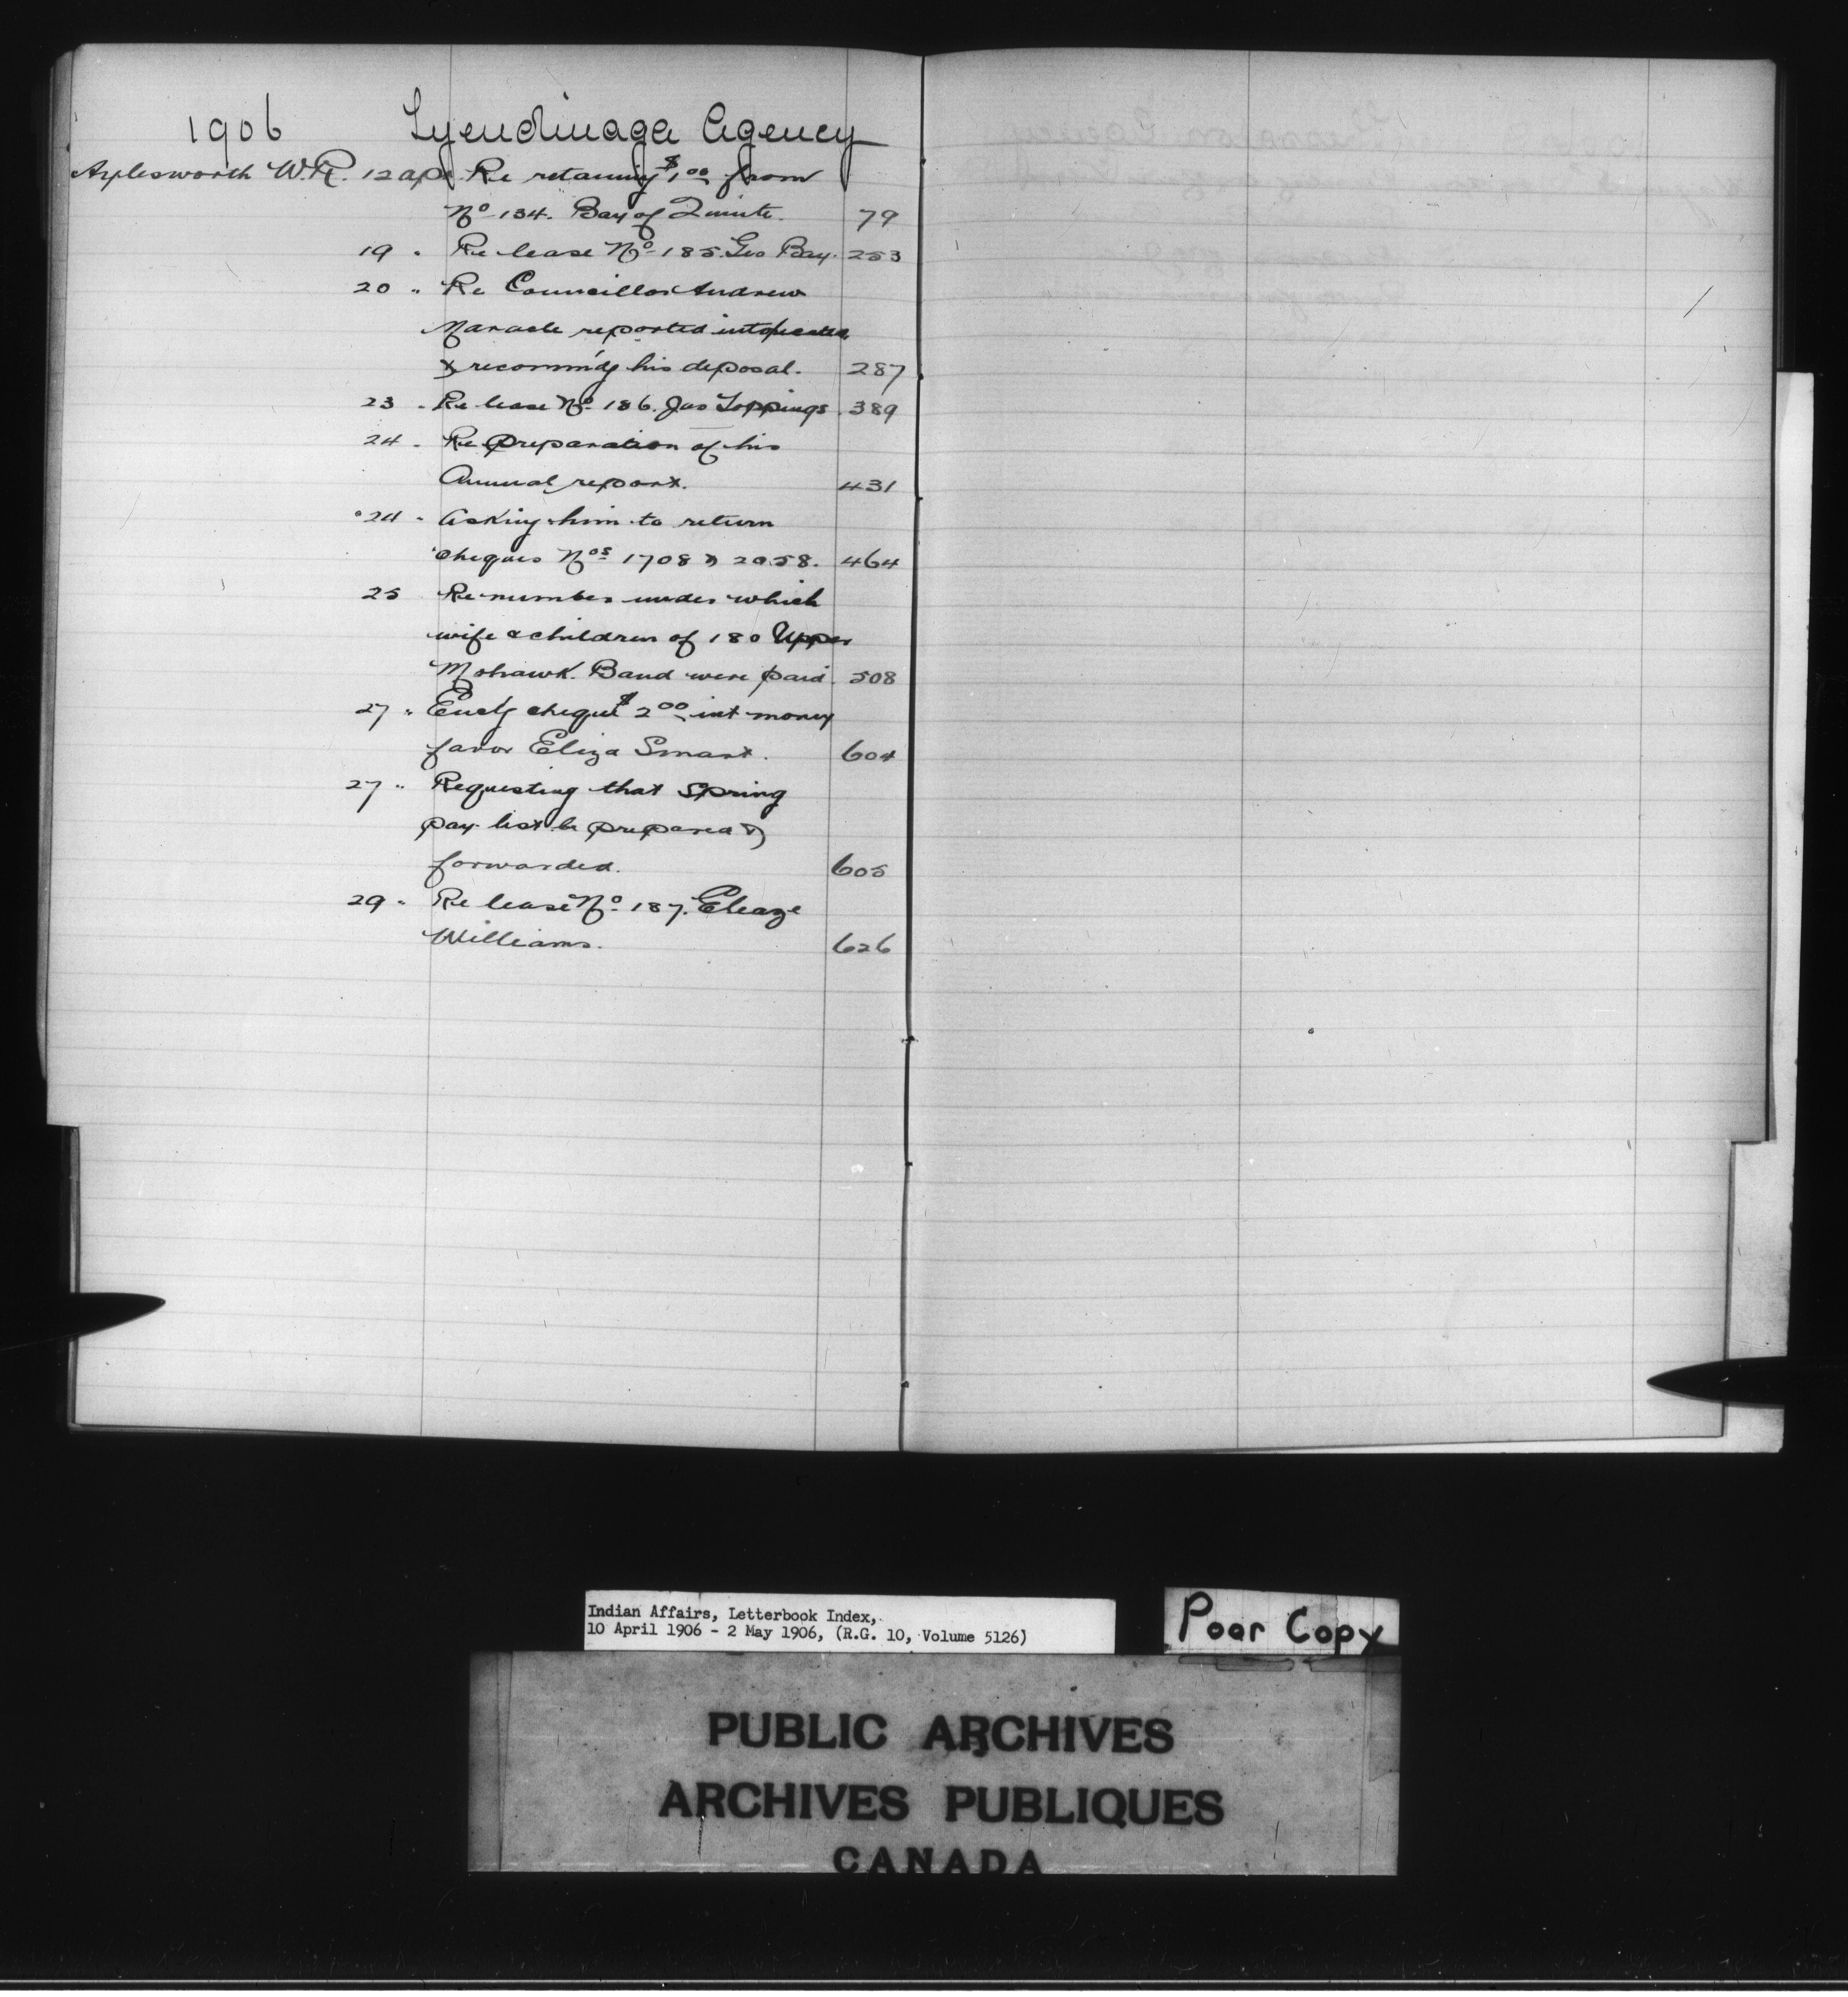 1906 Tyendinaga Agency
Aylesworth W.R. 12 Apl. Re retaining $1.00 from
No 134. Bay of Quinte. 79
19 " Re lease No 185. Geo Bay. 253
20 " Re Councillor Andrew
Maracle reported intoxicated
& recommdg his deposal. 287
23 " Re lease No 186. Jas Loppings 389
24 " Re preparation of his
Annual report. 431
24 " Asking him to return
cheques Nos 1708 & 2058. 464
25 Re number under which
wife & children of 180 Upper
Mohawk Band were paid. 508
27 " Encl'g cheque $2.00 int money
favor Eliza Smart. 604
27 " Requesting that Spring
pay list be prepared &
forwarded. 605
29 " Re lease No 187. Eleaze
Williams. 626
Indian Affairs, Letterbook Index,
10 April 1906 - 2 May 1906, (R.G. 10, Volume 5126)
Poor Copy
PUBLIC ARCHIVES
ARCHIVES PUBLIQUES
CANADA